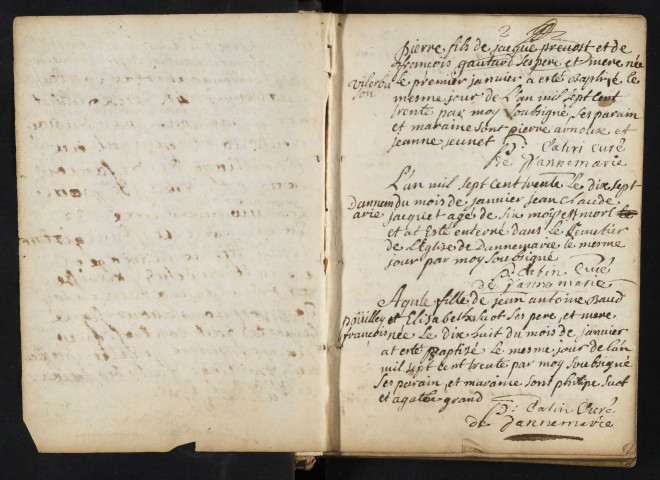 2
pierre fils de jacque prevost et de
francois gautard ses pere et mere née
vilerbu
son
le premier janvier a esté Baptisé le
mesme jour de L'an mil sept cent
trente par moy soubsigné ses parain
et maraine sont pierre arnoux et
jeanne jeunet
p: Catin curé
de Dannemarie
L'an mil sept cent trente Le dix sept
Dannem
arie
du mois de janvier jean Claude
jacquet agé de six mois est mort
et at esté enterré dans le Cemetier
de L'Eglise de Dannemarie le mesme
jour par moy soubsigné
p: Catin Curé
de Dannemarie
Agate fille de jean antoine Baud
poüilley
francois
et Elisabeth suot ses pere et mere
née Le dix huit du mois de janvier
at esté Baptizé le mesme jour de l'an
mil sept cent trente par moy soubsigné
ses parain et maraine sont philipe suot
et agate grand
p: Catin Curé
de Dannemarie